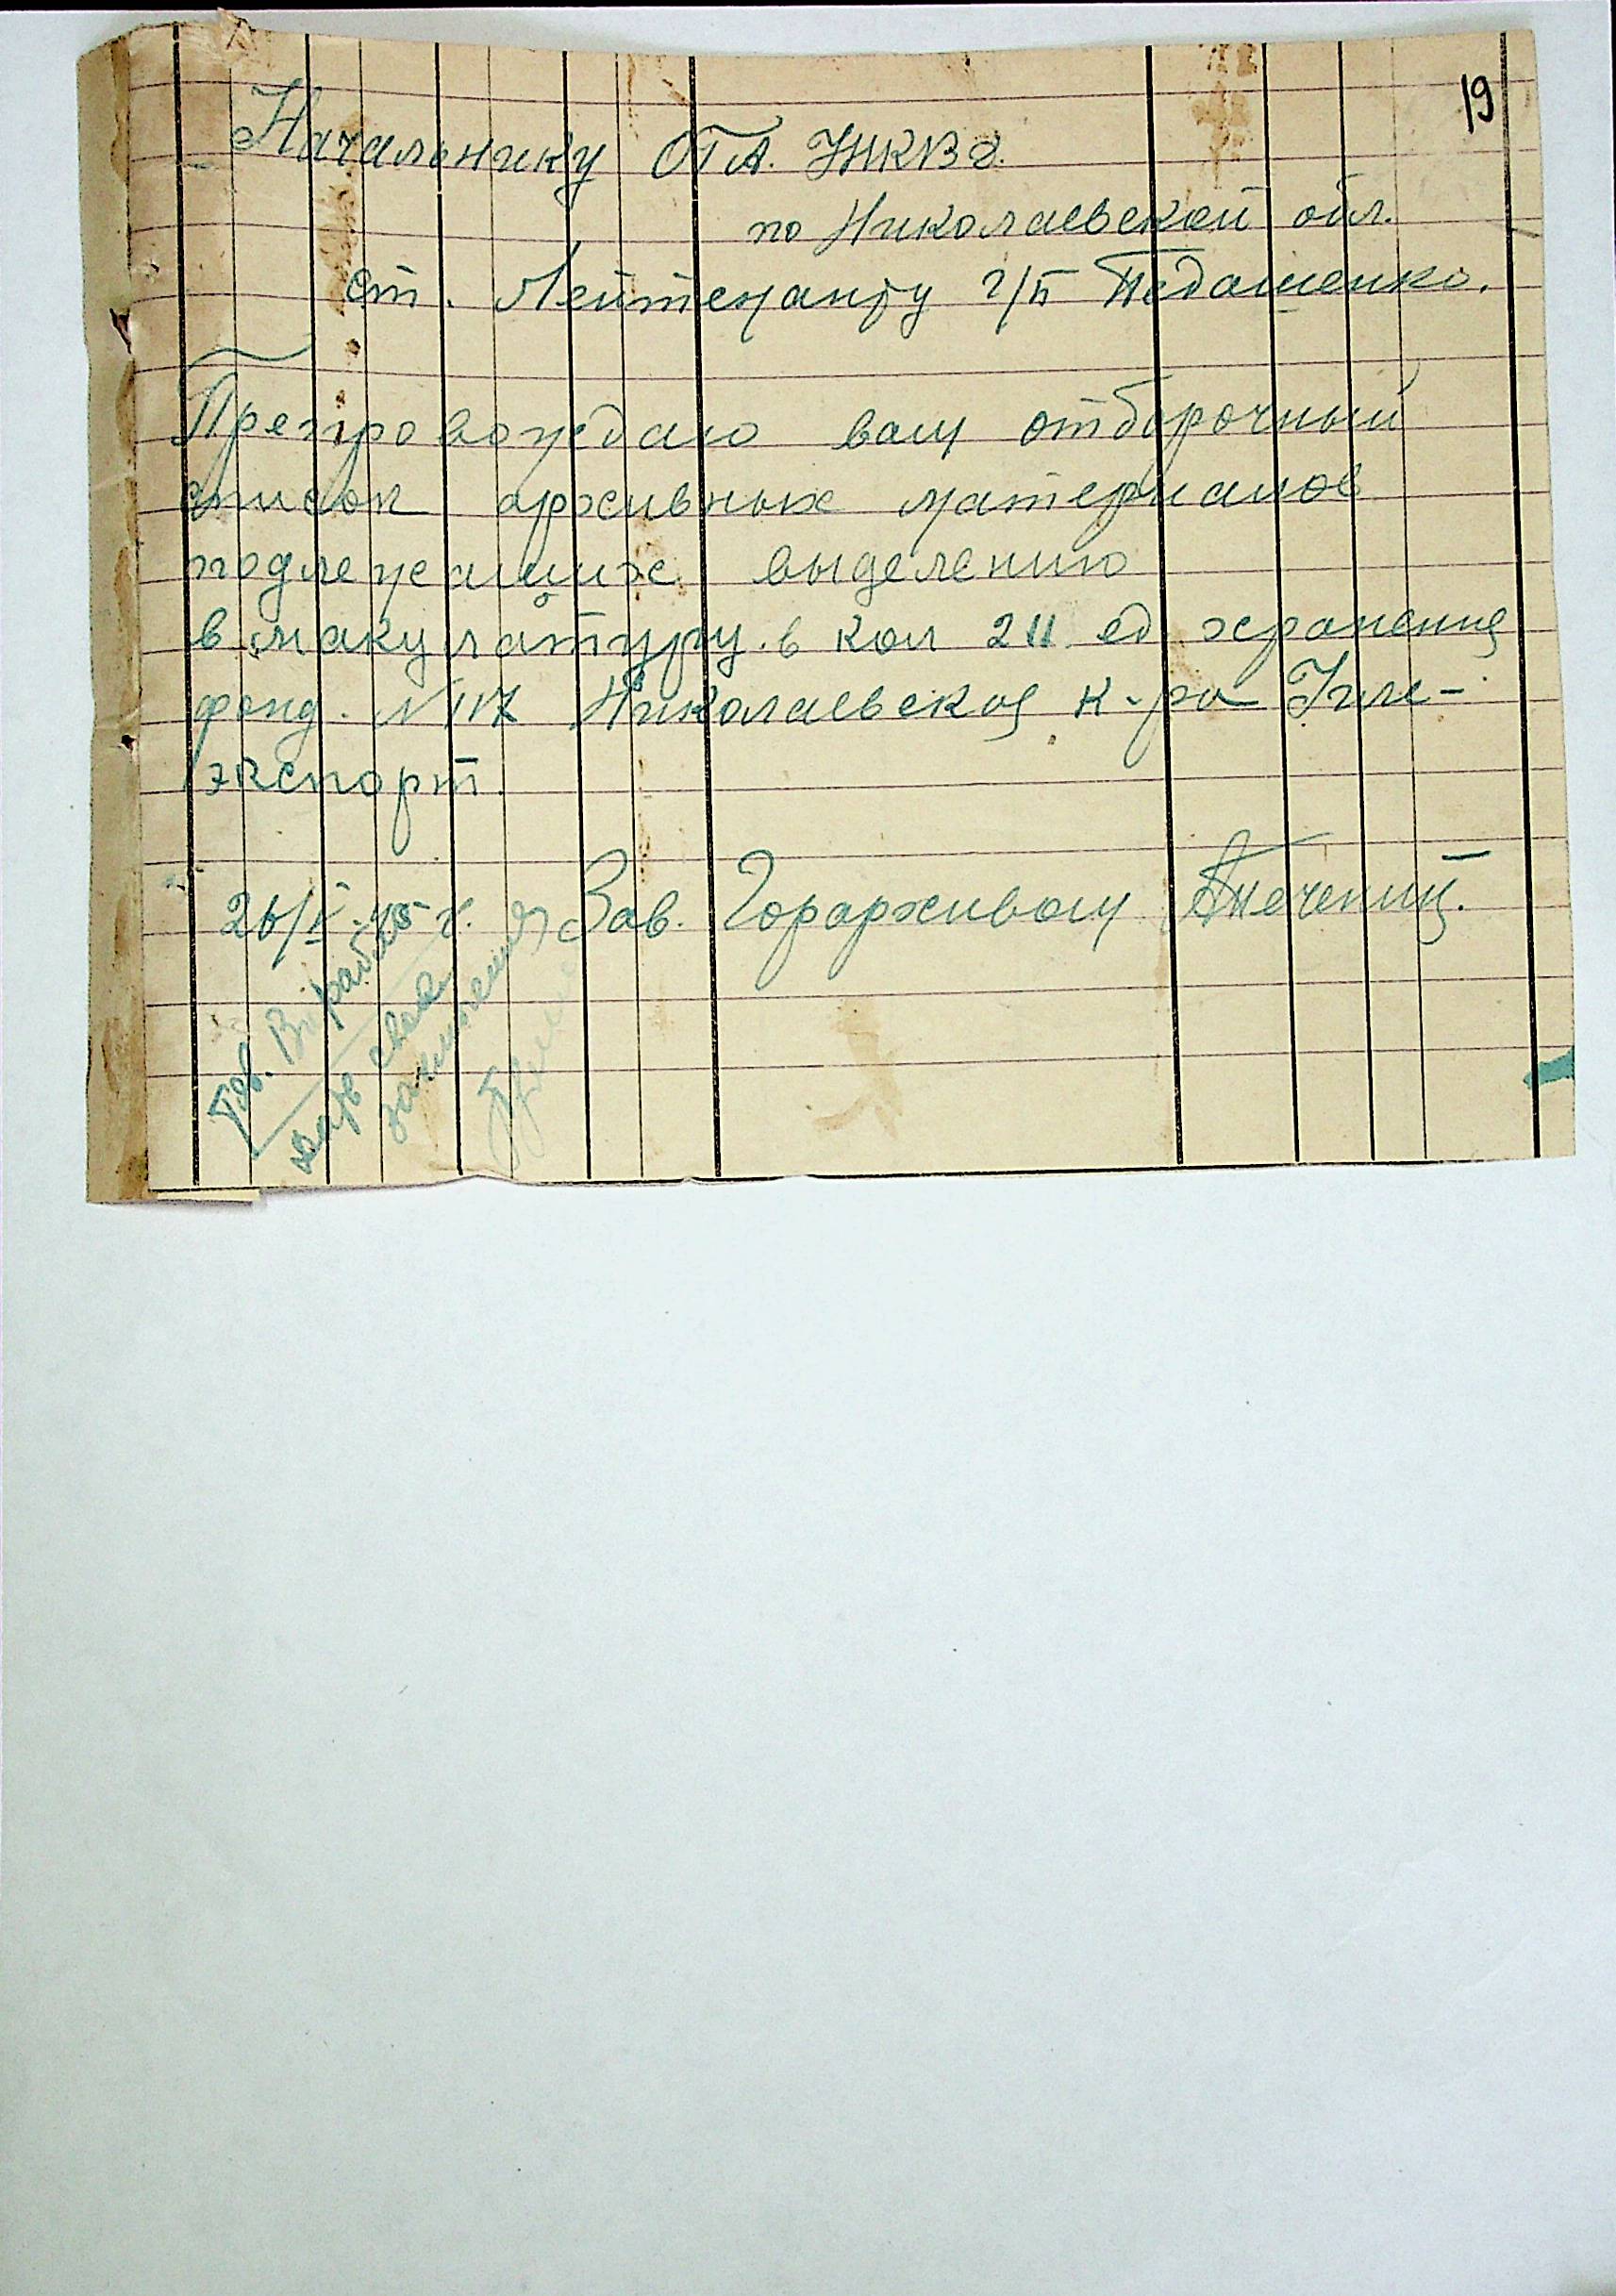 19
Начальнику ОГА. УНКВД.
по Николаевской обл.
ст. Лейтенанту г/б Педашенко.
Препровождаю вам отборочный
список архивных материалов
подлежащих выделению
в макулатуру в кол 211 ед хранения
фонд. N 117 Николаевская к-ра
экспорт.
45 г. Зав. Горархивом
Тов.
дать свое
заключение